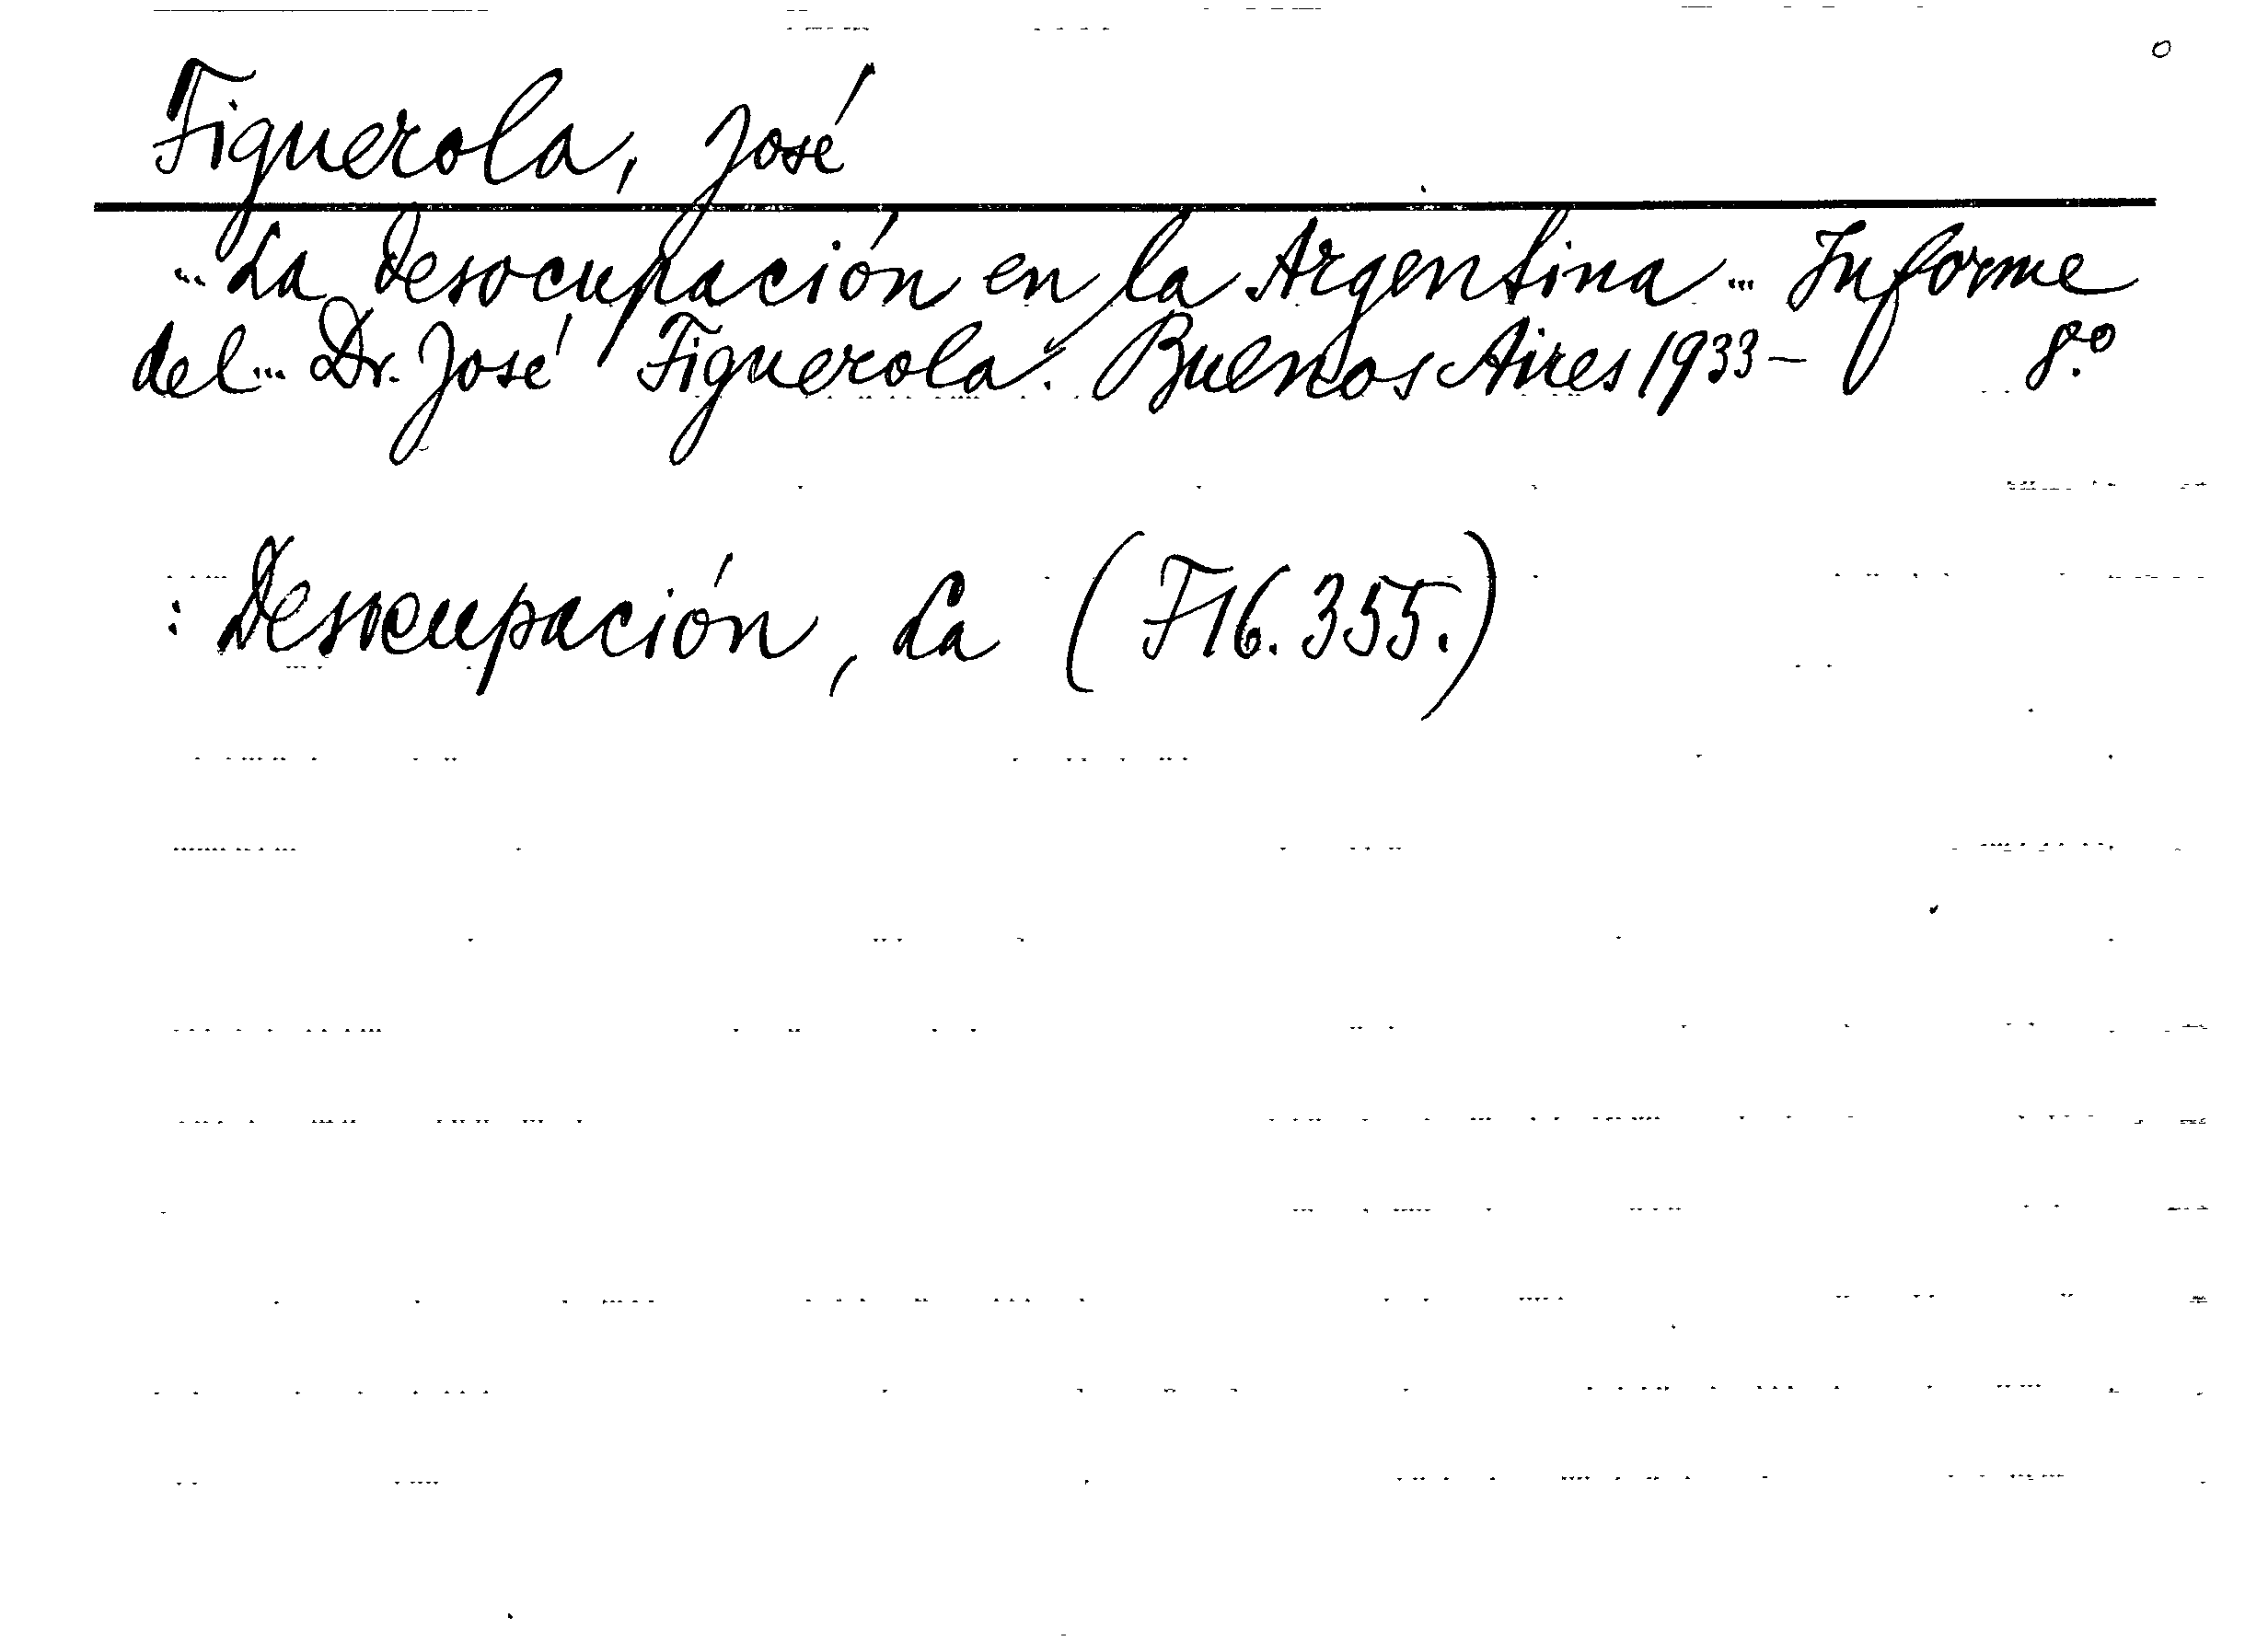 Figuerola, José
... La desocupación en la Argentina ... Informe
del ... Dr. José Figuerola. Buenos Aires 1933 - 8.º
: Desocupación, La (F16.355.)